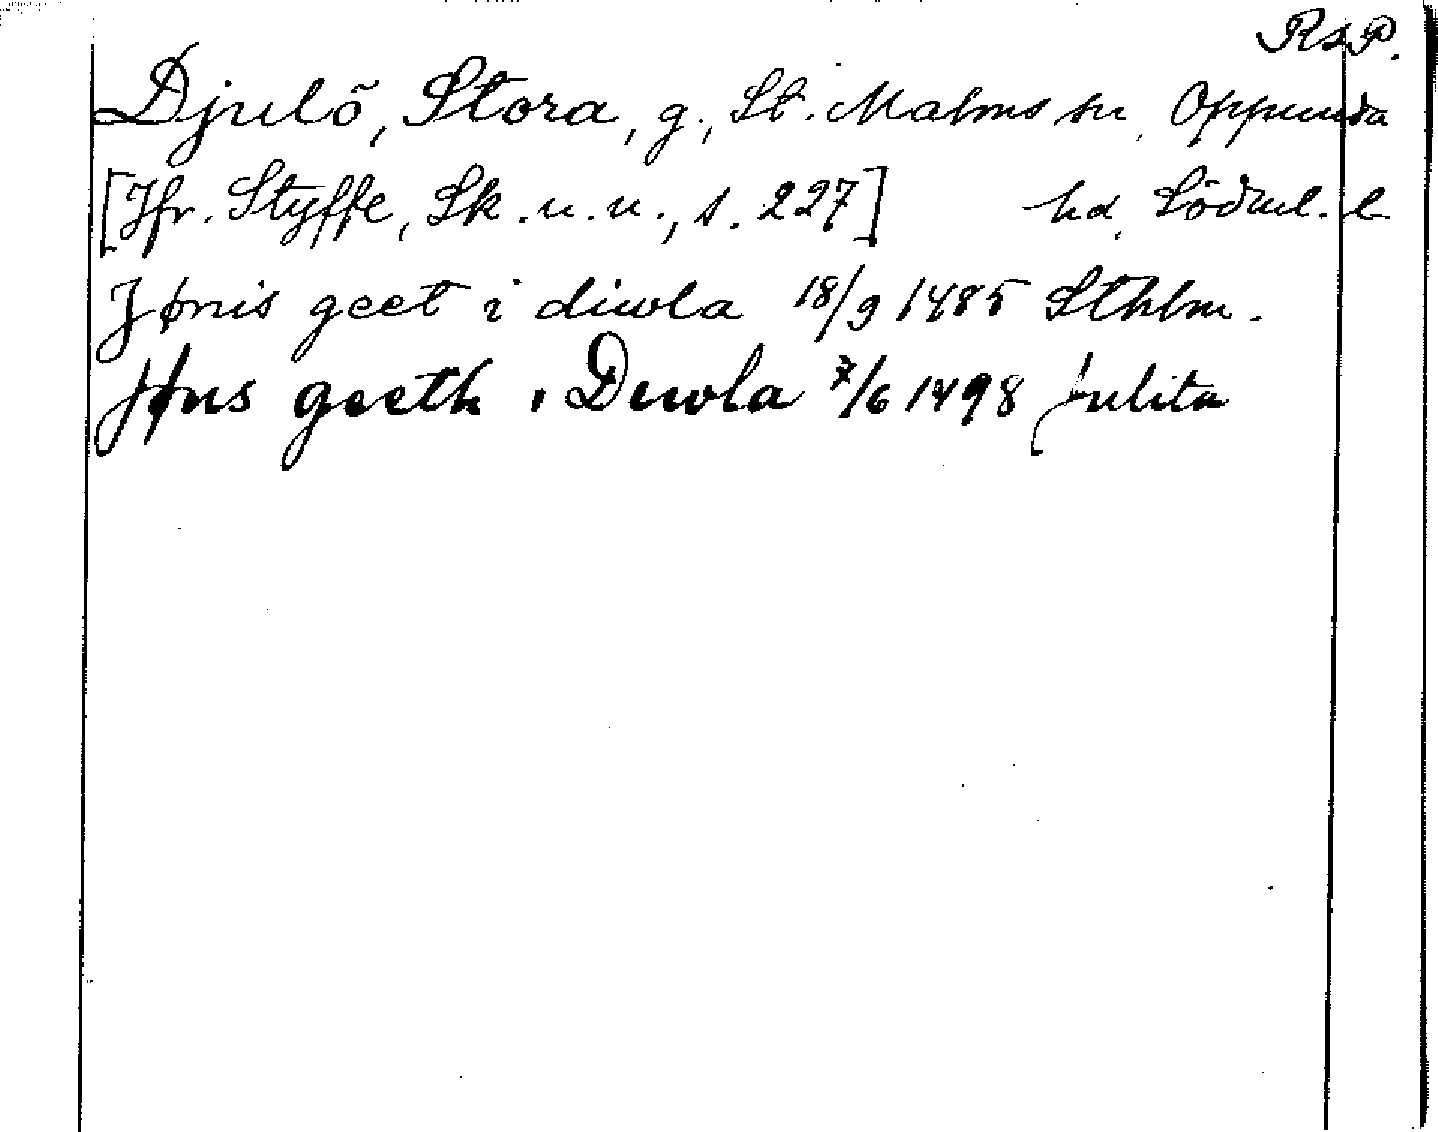 RsP.
Djulö, Stora, g., St. Malms sn, Oppunda
[Jfr. Styffe, Sk.u.u., s. 227] hd, Södml. l
Jønis geet i diwla 18/9 1485 Sthlm.
Jøns geeth i Diwla 7/6 1498 Julita